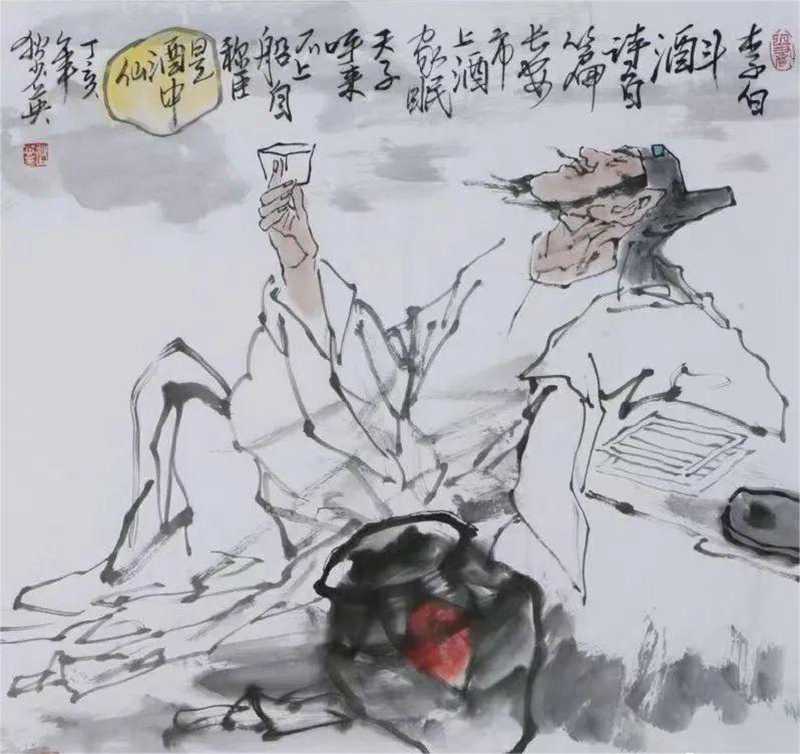 李白
斗酒
诗百
篇
长安
市
上酒
家眠
天子
呼来
不上
船自
称臣
是
酒中
仙
丁亥
年